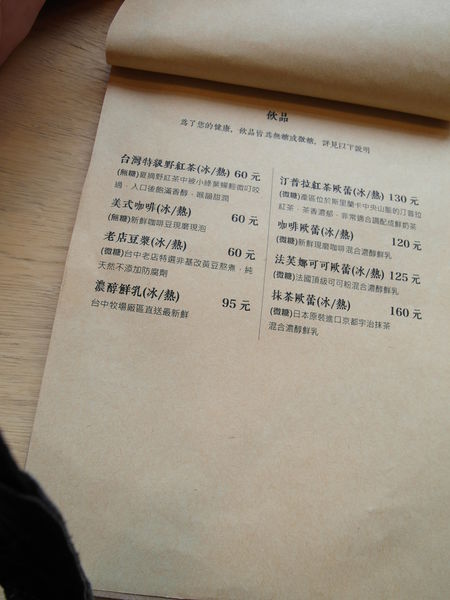 飲品
為了您的健康，飲品皆為無糖或微糖，詳見以下說明
台灣特級野紅茶(冰/熱) 60 元
(無糖)夏摘野紅茶中被小綠葉蟬輕微叮咬
過，入口後飽滿香醇、喉韻甜潤
美式咖啡(冰/熱) 60 元
(無糖)新鮮咖啡豆現磨現泡
老店豆漿(冰/熱) 60 元
(微糖)台中老店特選非基改黃豆熬煮，純
天然不添加防腐劑
濃醇鮮乳(冰/熱) 95 元
台中牧場廠區直送最新鮮
汀普拉紅茶歐蕾(冰/熱) 130 元
(微糖)產區位於斯里蘭卡中央山脈的汀普拉
紅茶，茶香濃郁，非常適合調配成鮮奶茶
咖啡歐蕾(冰/熱) 120 元
(微糖)新鮮現磨咖啡混合濃醇鮮乳
法芙娜可可歐蕾(冰/熱) 125 元
(微糖)法國頂級可可粉混合濃醇鮮乳
抹茶歐蕾(冰/熱) 160 元
(微糖)日本原裝進口京都宇治抹茶
混合濃醇鮮乳